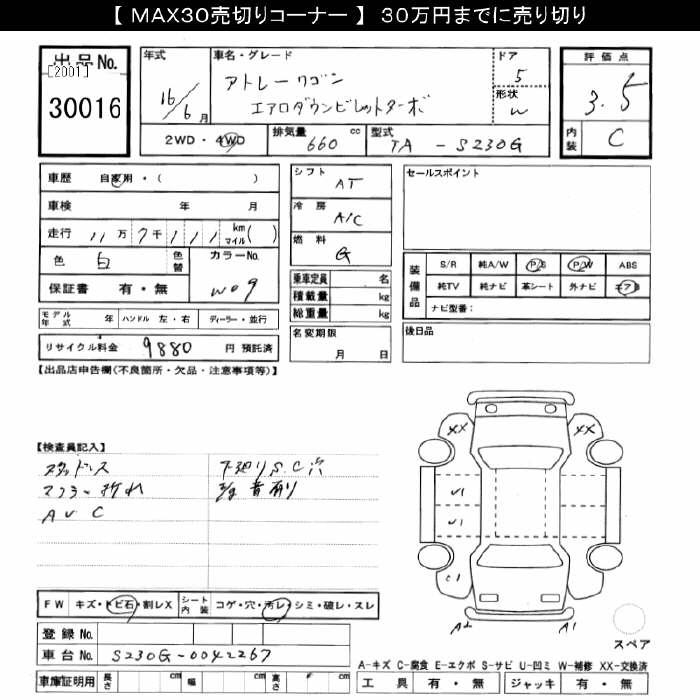 【 MAX30売切りコーナー 】 30万円までに売り切り
出品No.
[2001]
30016
年式
16/6月
車名・グレード
アトレーワゴン
エアロダウンビレットターボ
ドア
5
形状
W
評価点
3.5
内装
C
2WD・4WD
排気量 660 cc
型式 TA - S230G
車歴 自家用・( )
車検 年 月
走行 11万7千111 km マイル( )
色 白 色替
カラーNo.
W09
保証書 有・無
シフト
AT
冷房
A/C
燃料
G
乗車定員 名
積載量 kg
総重量 kg
セールスポイント
装備品
S/R 純A/W P/S P/W ABS
純TV 純ナビ 革シート 外ナビ エアB
ナビ型番：
モデル年式 年 ハンドル 左・右 ディーラー・並行
名変期限
月 日
後日品
リサイクル料金 9880 円 預託済
【出品店申告欄(不良箇所・欠品・注意事項等)】
【検査員記入】
スタッドレス
マフラー折れ
AUC
下廻りS.C穴
音有り
XX XX
U1
U1
C1
A2 A1
スペア
FW キズ・トビ石・割レX
シート内装 コゲ・穴・汚レ・シミ・破レ・スレ
登録No.
車台No. S230G-0042267
車庫証明用 長さ cm 幅 cm 高さ cm
A-キズ C-腐食 E-エクボ S-サビ U-凹ミ W-補修 XX-交換済
工具 有・無 ジャッキ 有・無